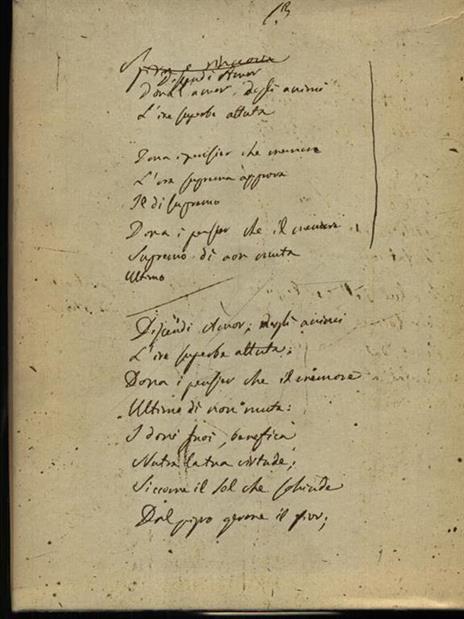 Discendi Amor
Dona l'amor, degli animi
L'ire superbe attuta
Dona i pensier che memore
L'ora suprema approva
Il di supremo
Dona i pensier che il memore
Supremo di non muta
Ultimo
Discendi Amor; negli animi
L'ire superbe attuta;
Dona i pensier che il memore
Ultimo di non muta:
I doni tuoi, benefica
Nutra la tua virtude;
Siccome il sol che schiude
Dal pigro germe il fior;